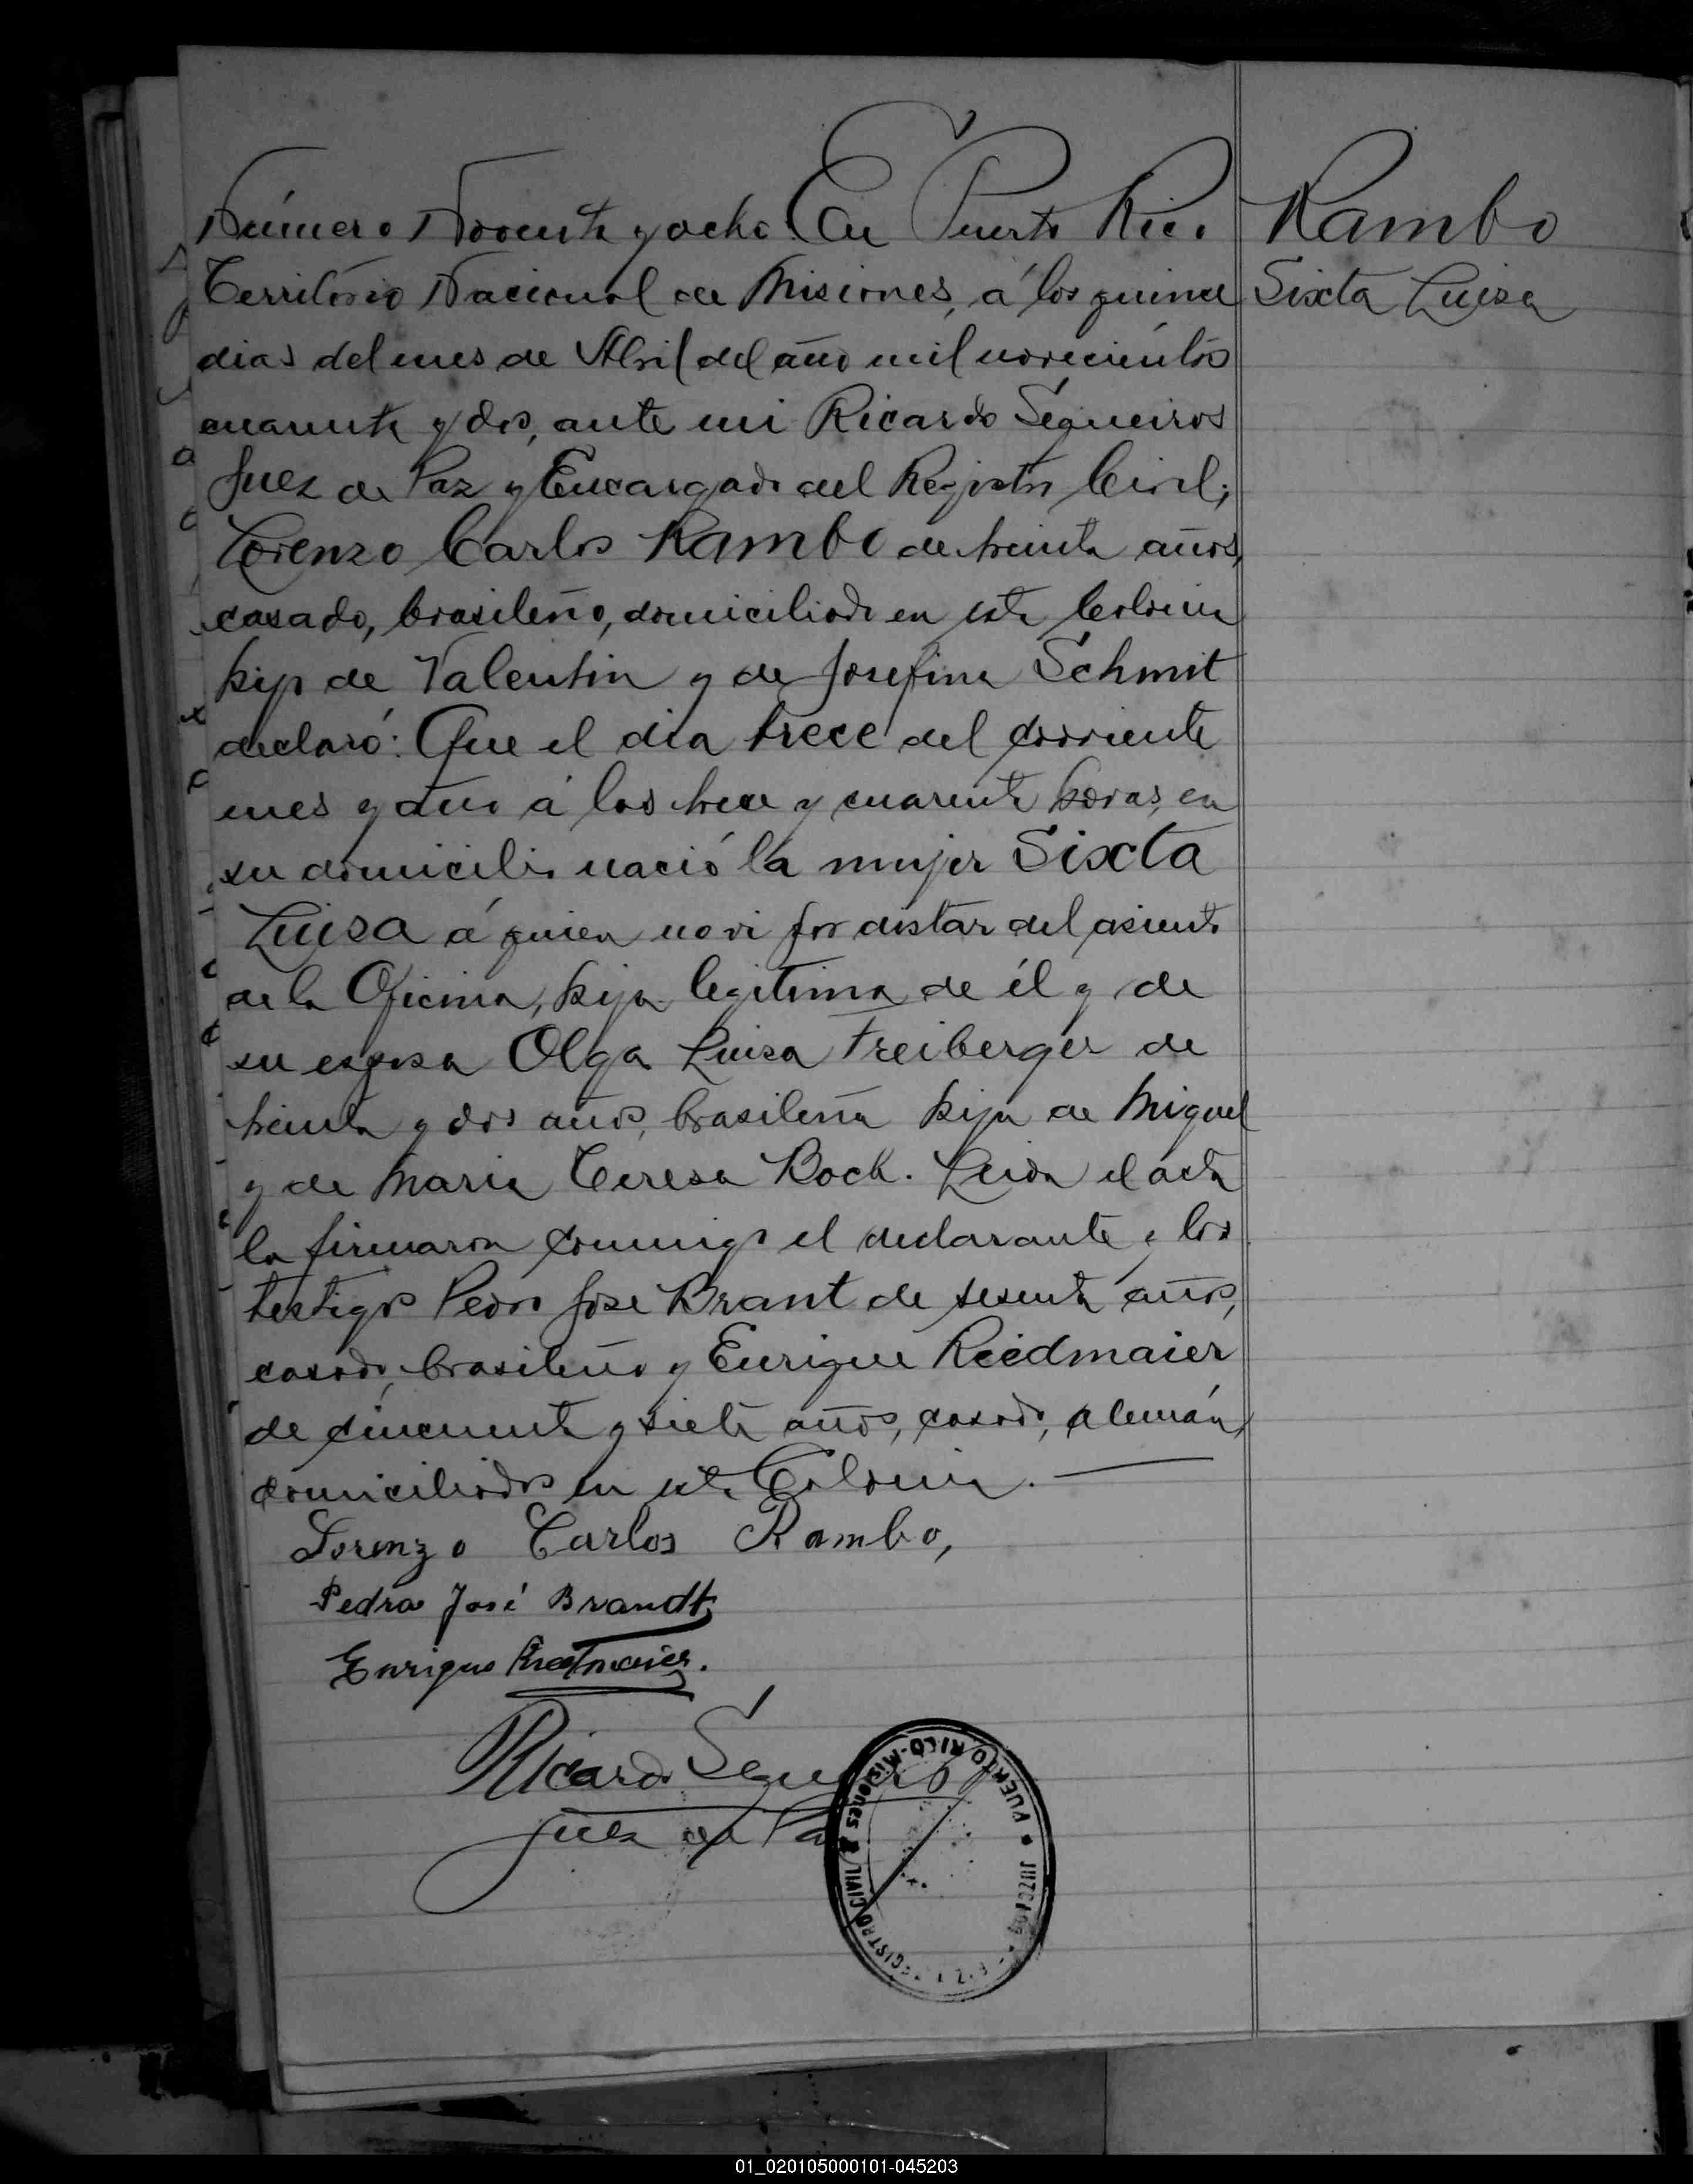 Número Noventa y ocho. En Puerto Rico
Rambo
Territorio Nacional de Misiones, á los quince
Sixta Luisa
dias del mes de Abril del año mil novecientos
cuarenta y dos, ante mi Ricardo Segueiros
Juez de Paz y Encargado del Registro Civil;
Lorenzo Carlos Rambo de treinta años,
casado, brasileño, domiciliado en esta Colonia
hijo de Valentin y de Josefina Schmit
declaró: Que el dia trece del corriente
mes y año á las trece y cuarenta horas, en
su domicilio nació la mujer Sixta
Luisa á quien no vi por distar del asiento
de la Oficina, hija legitima de él y de
su esposa Olga Luisa Freiberger de
treinta y dos años, brasileña hija de Miguel
y de Maria Teresa Bock. Leida el acta
la firmaron conmigo el declarante y los
testigos Pedro Jose Brant de sesenta años,
casado, brasileño y Enrique Riedmaier
de cincuenta y siete años, casado, alemán,
domiciliados en esta Colonia.
Lorenzo Carlos Rambo,
Pedro José Brandt
Enrique Riedmaier.
Ricardo Segueiros
Juez de Paz
PUERTO RICO-MISIONES
REGISTRO CIVIL
JUZGADO
01_020105000101-045203